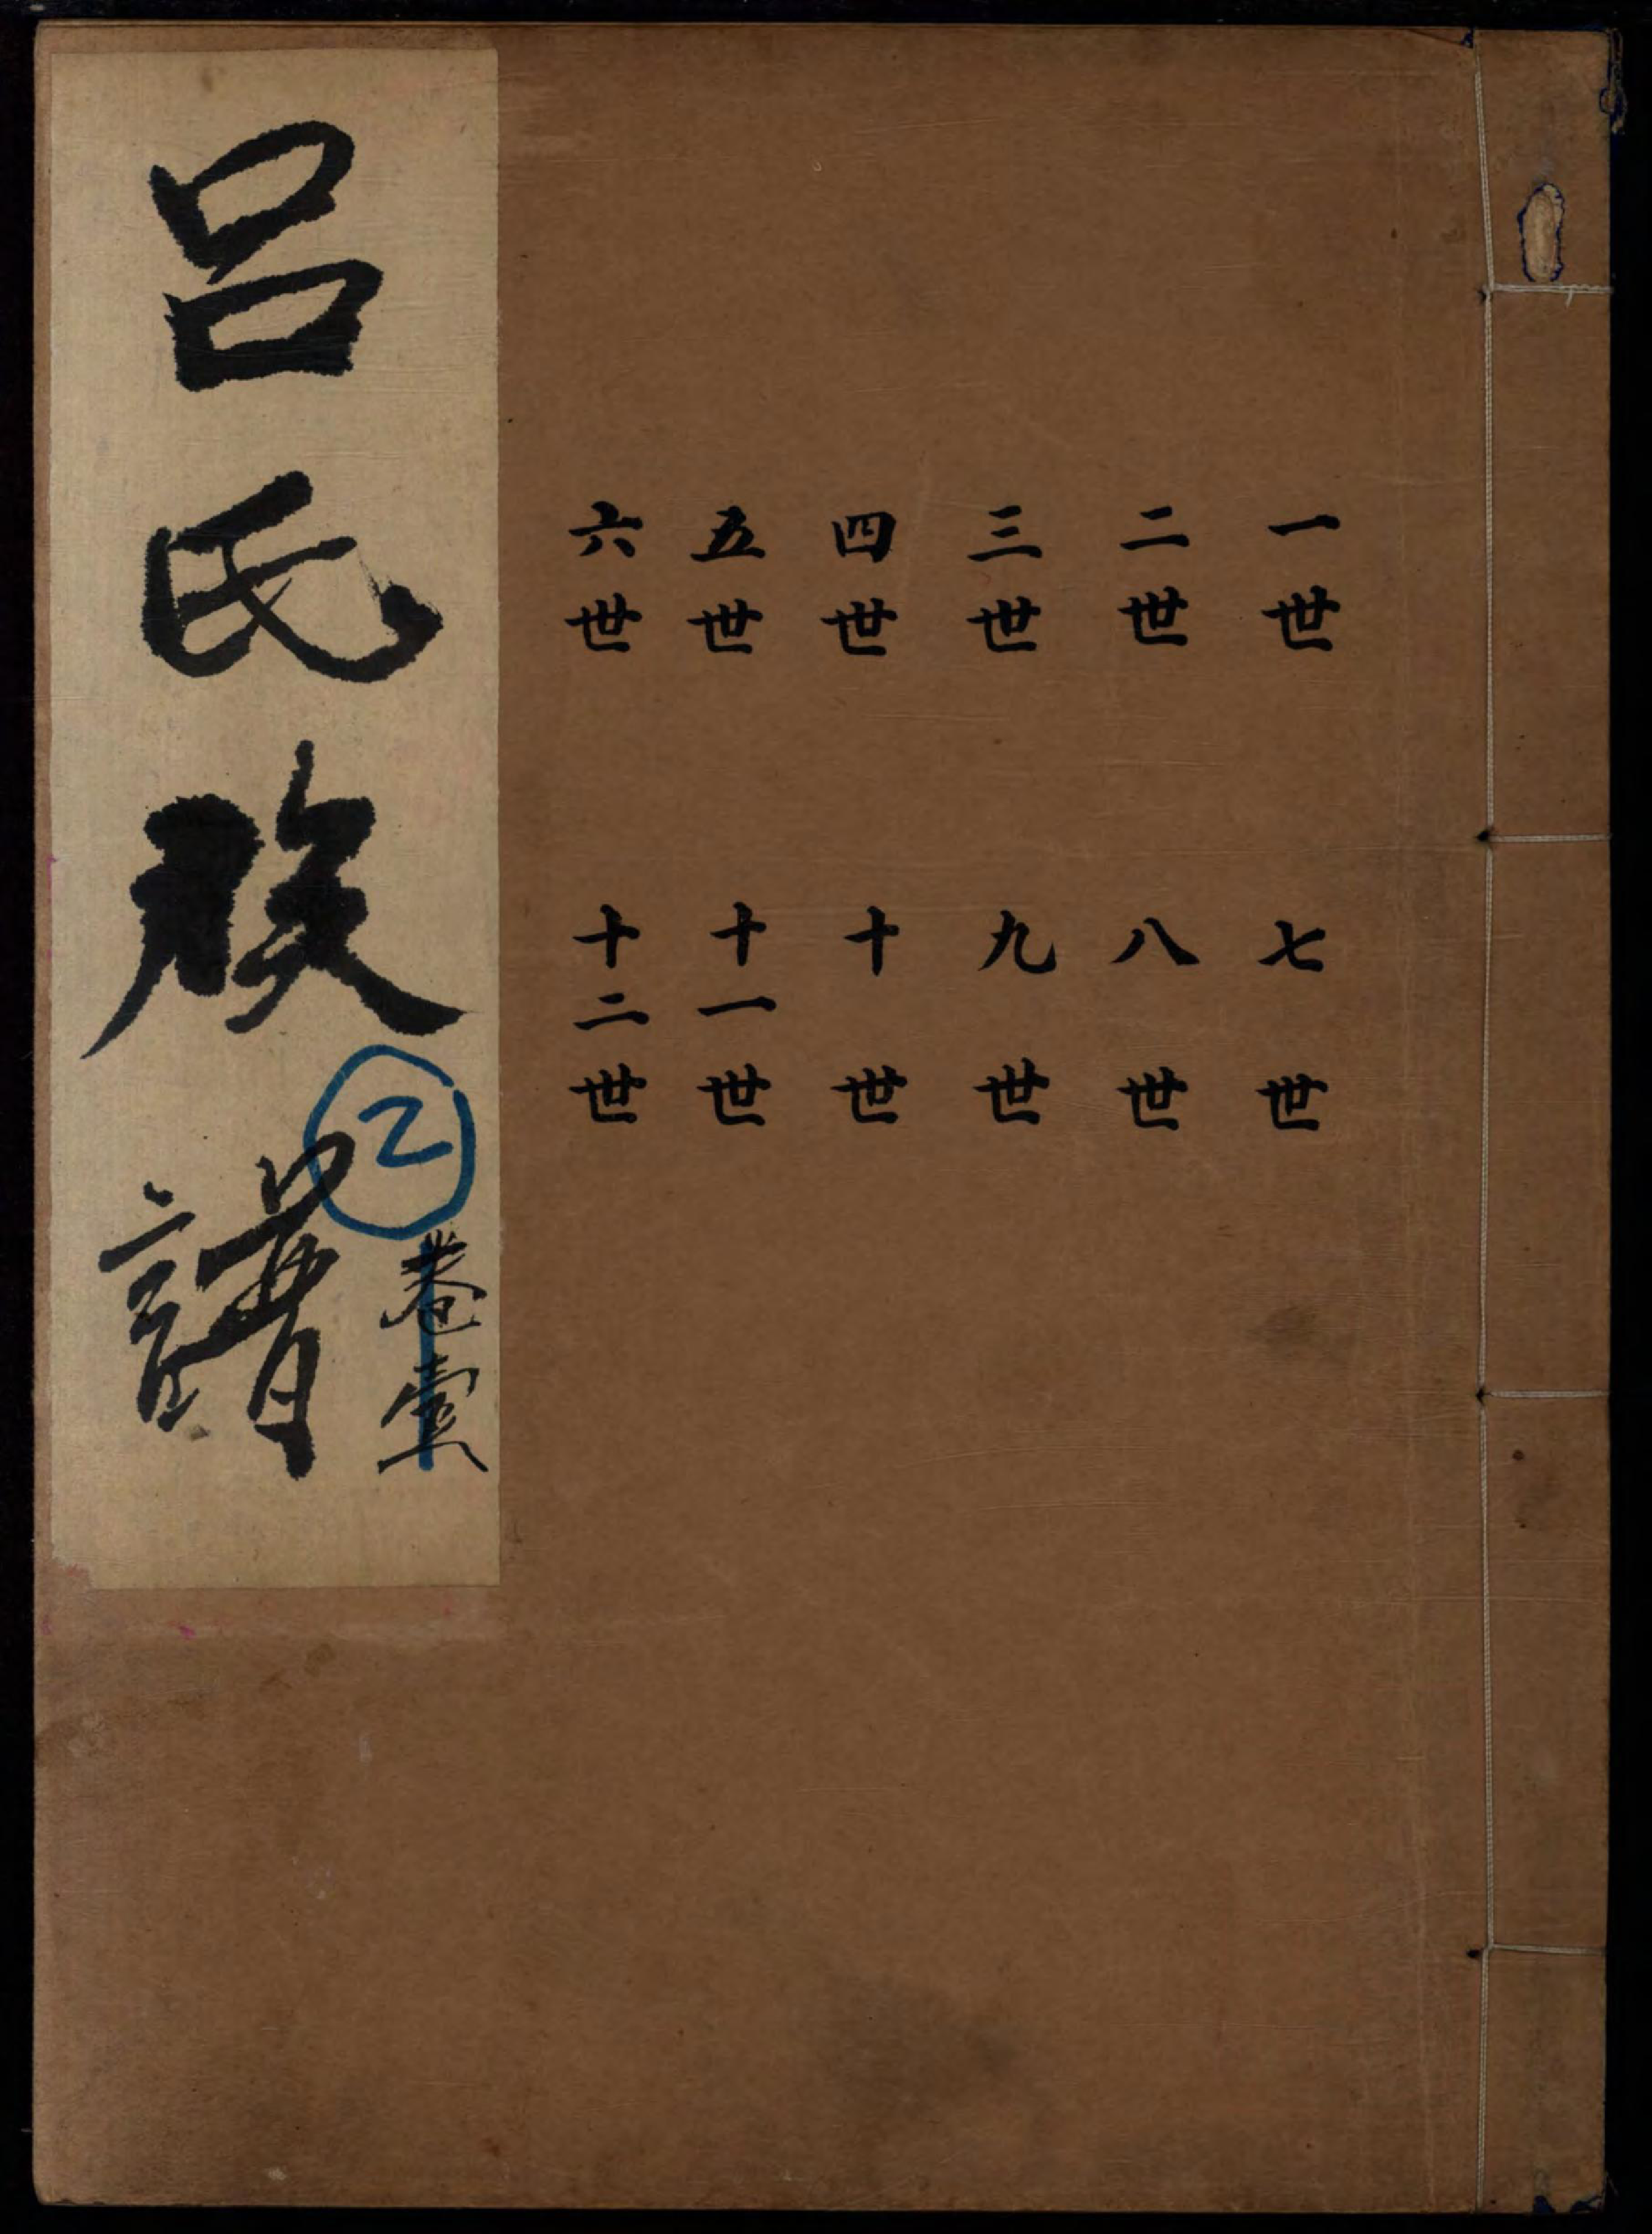 一世
二世
三世
四世
五世
六世
七世
八世
九世
十世
十一世
十二世
呂氏族譜
卷壹
2